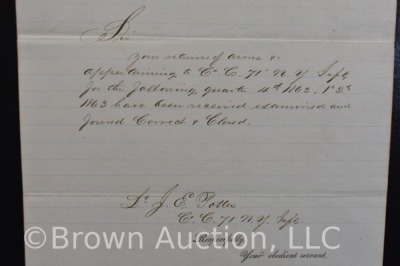 Sir
Your return of arms &
appertaining to Co. C. 71st N. Y. Infy
for the following quarter 4th 1862, 1st & 2d
1863 have been received examined and
found Correct & Closed.
J. E. Potter
Co. C, 71 N.Y. Infy.
Respectfully
Your obedient servant.
© Brown Auction, LLC